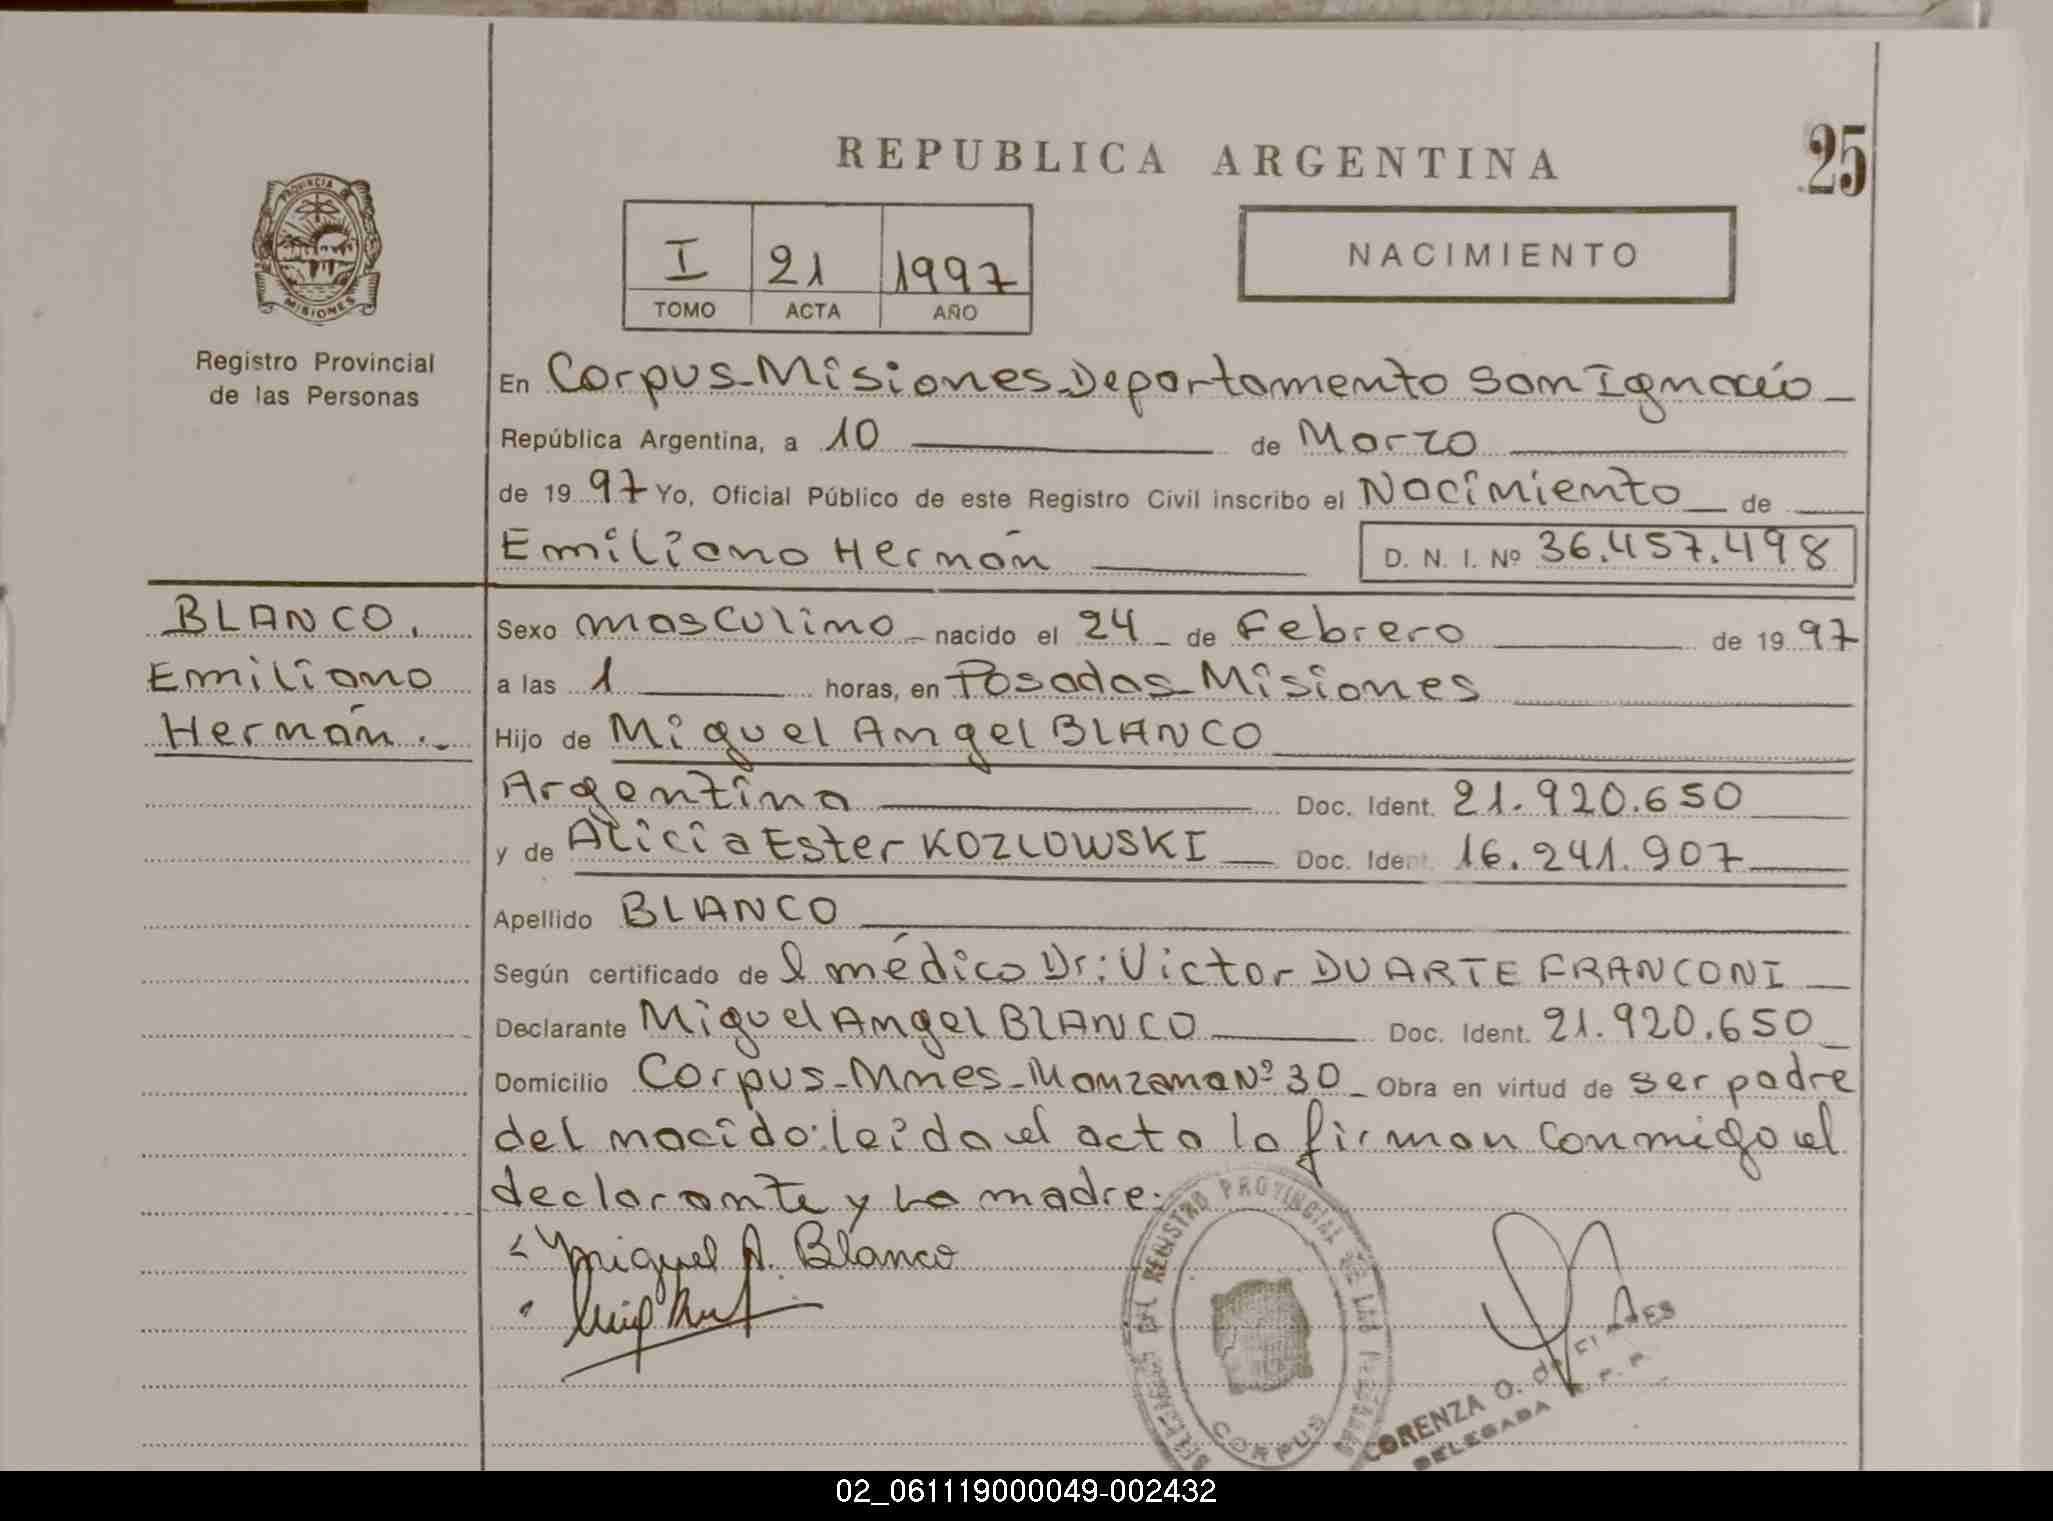 REPUBLICA ARGENTINA
25
PROVINCIA DE
MISIONES
Registro Provincial
de las Personas
I 21 1997
TOMO ACTA AÑO
NACIMIENTO
En Corpus-Misiones-Departamento San Ignacio
República Argentina, a 10 de Marzo
de 1997 Yo, Oficial Público de este Registro Civil inscribo el Nacimiento de
Emiliano Hernán D. N. I. Nº 36.457.498
BLANCO,
Emiliano
Hernán.-
Sexo masculino nacido el 24 de Febrero de 1997
a las 1 horas, en Posadas-Misiones
Hijo de Miguel Angel BLANCO
Argentina Doc. Ident. 21.920.650
y de Alicia Ester KOZLOWSKI Doc. Ident. 16.241.907
Apellido BLANCO
Según certificado de l médico Dr: Victor DUARTE FRANCONI
Declarante Miguel Angel BLANCO Doc. Ident. 21.920.650
Domicilio Corpus-Mnes-Manzana Nº 30 Obra en virtud de ser padre
del nacido: leida el acta la firman conmigo el
declarante y la madre.
Miguel A. Blanco
DEL REGISTRO PROVINCIAL DE LAS PERSONAS
CORPUS
LORENZA O. de
DELEGADA R. P. P.
02_061119000049-002432